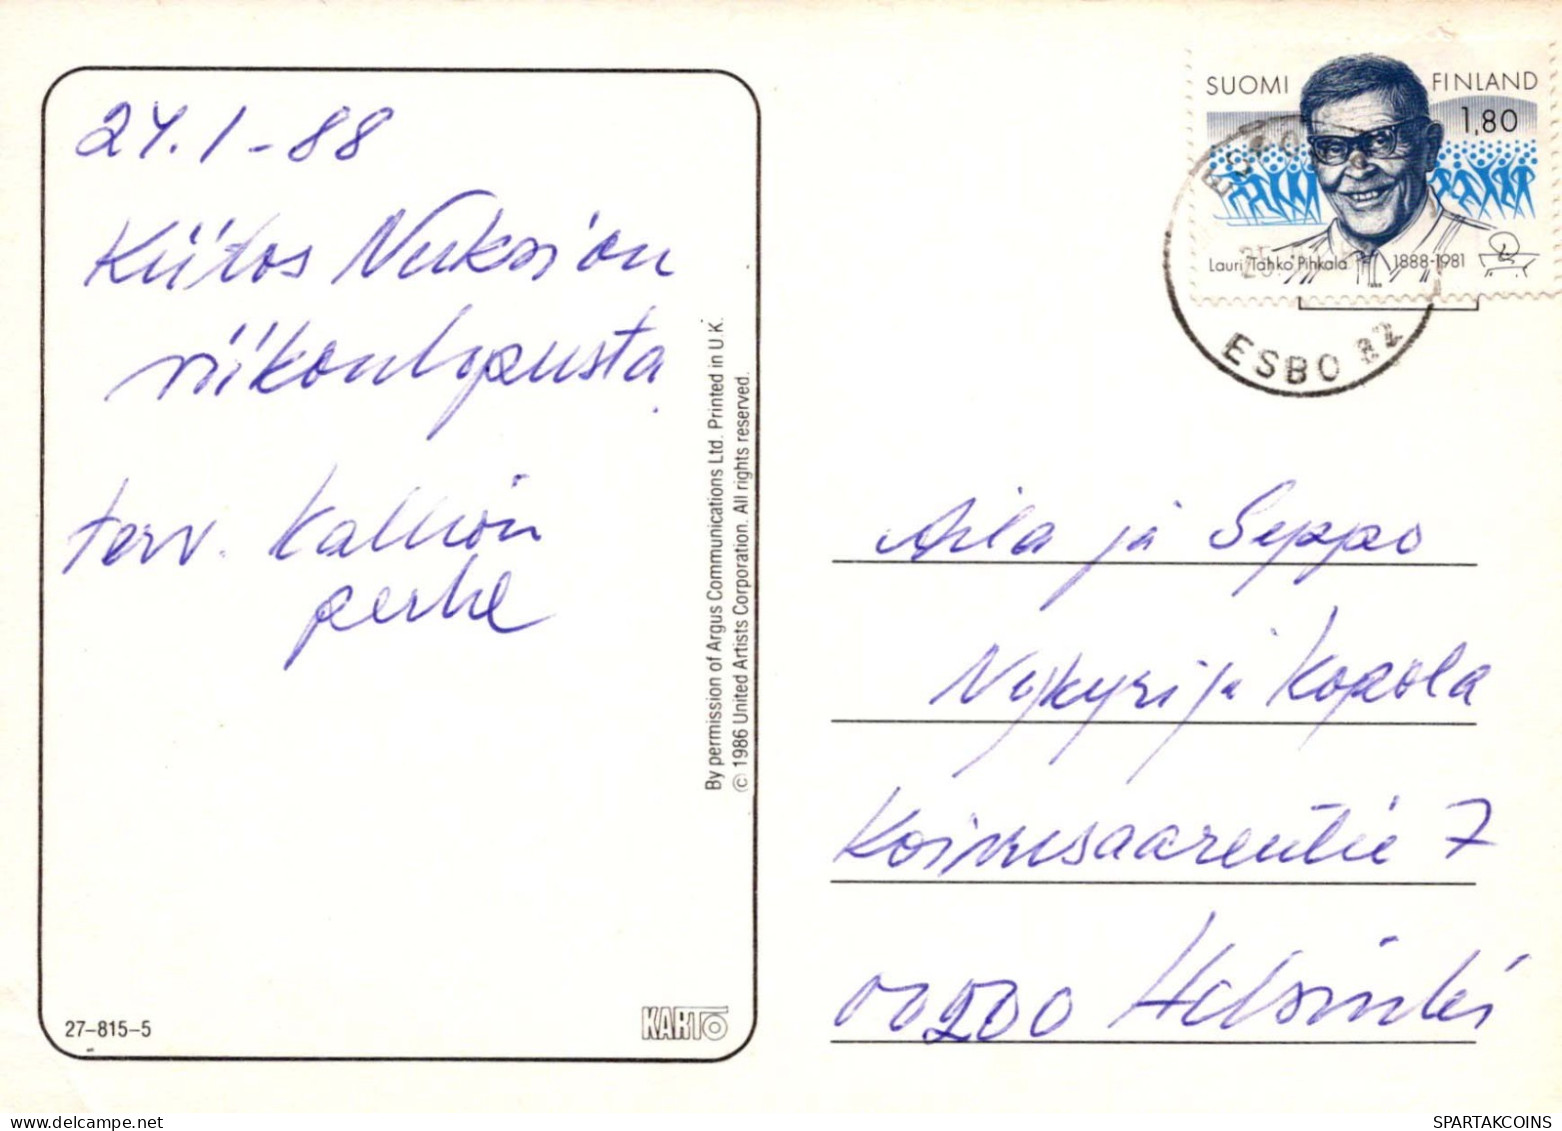 24.1-88
Kiitos Nuksion
viikonlopusta
terv. Kallion
perhe
27-815-5
KARTO
By permission of Argus Communications Ltd. Printed in U.K.
© 1986 United Artists Corporation. All rights reserved.
SUOMI FINLAND
1,80
Lauri "Tahko" Pihkala 1888-1981
25.
ESBO 82
Aila ja Seppo
Nykyri ja Kopola
Koivusaarentie 7
00200 Helsinki
SPARTAKCOINS